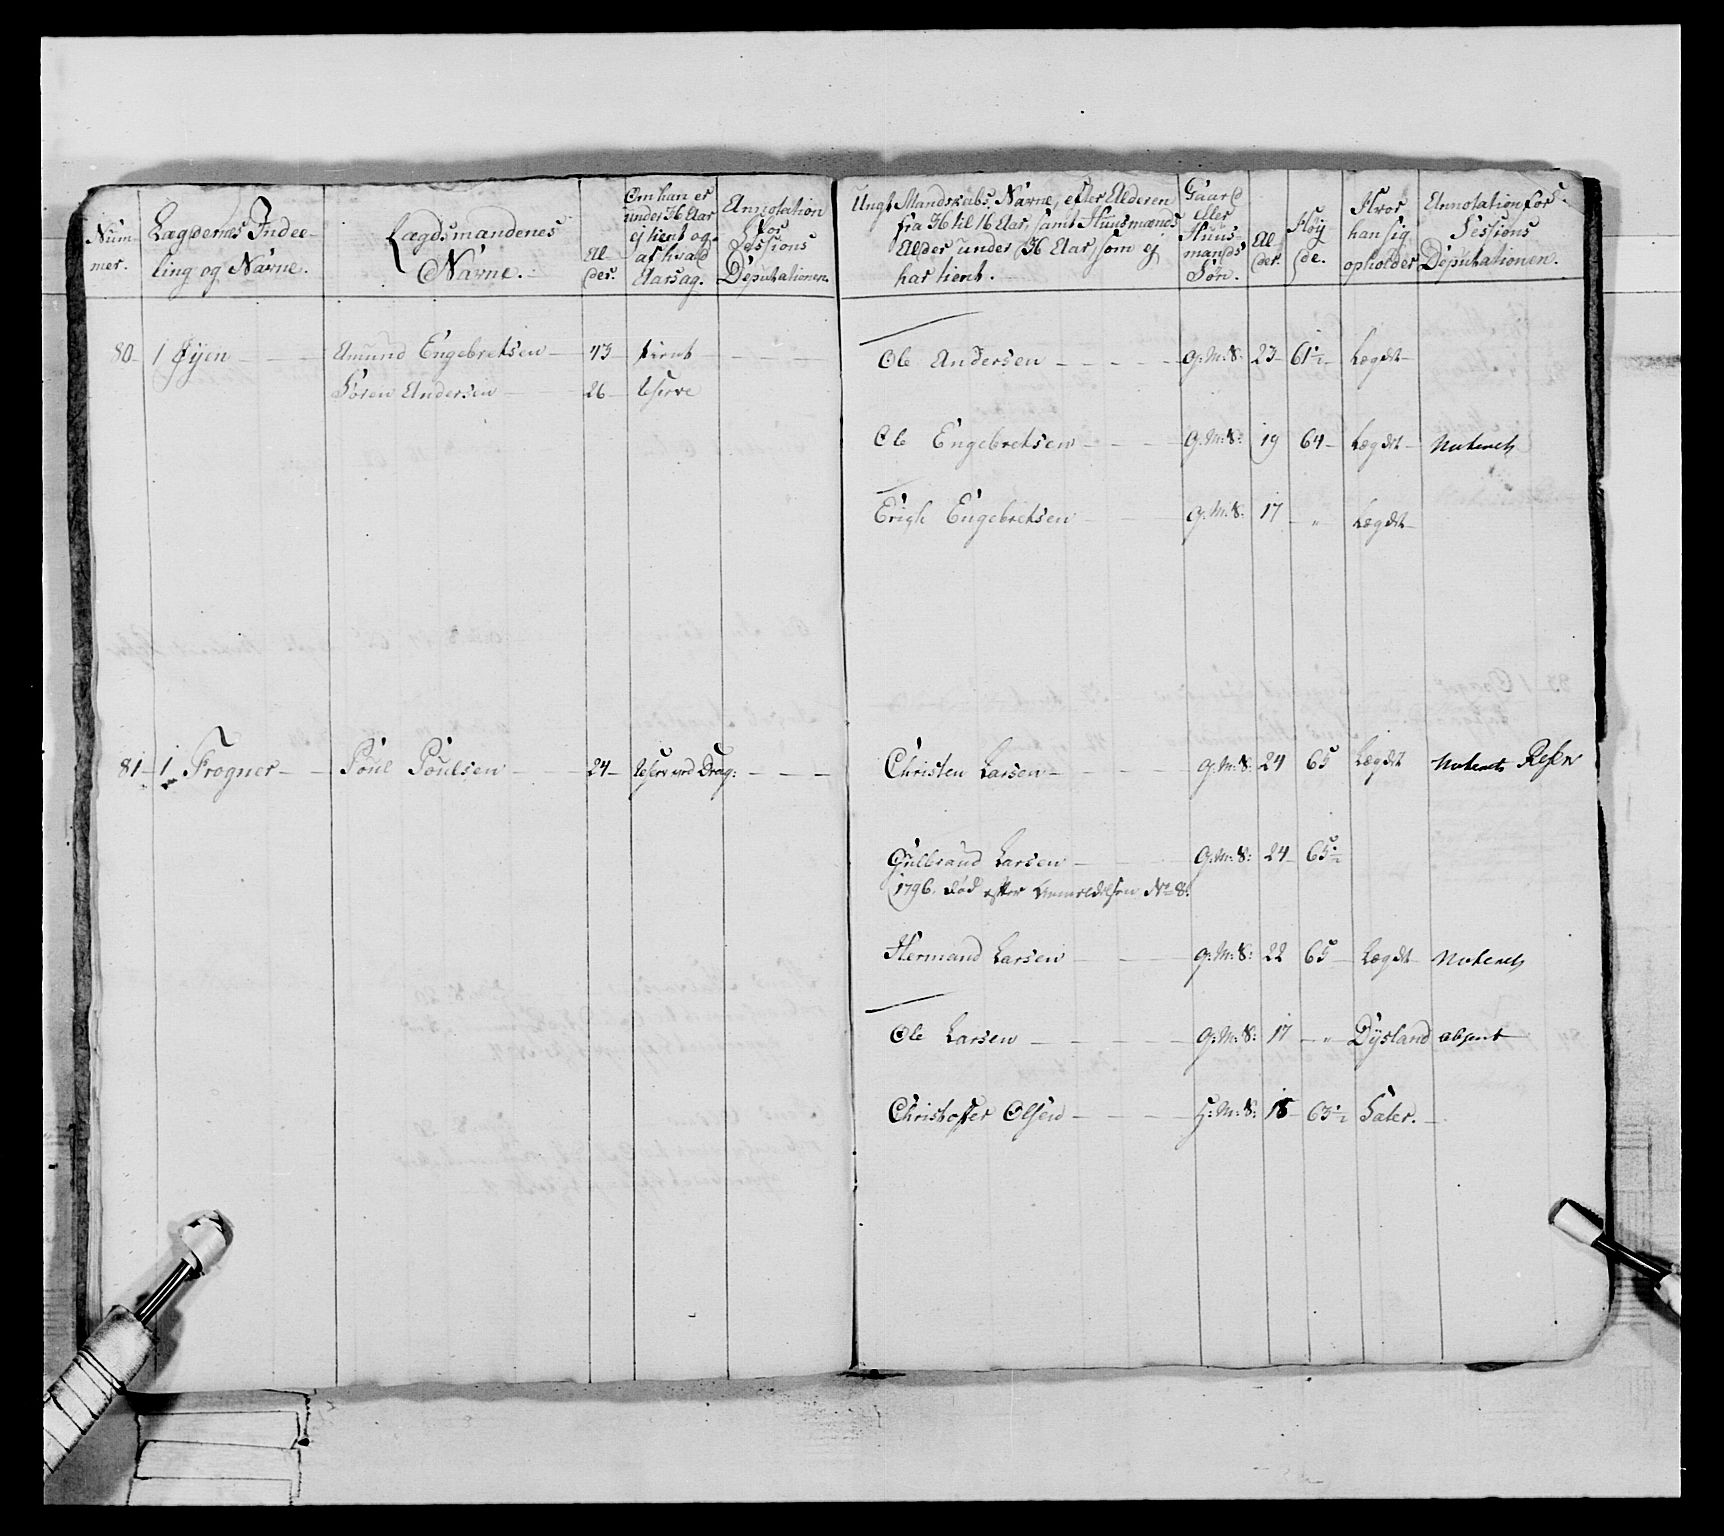 Num-
mer.
Lægdernes Indee-
ling og Navne.
Lægdsmandenes
Navne.
Al-
der.
Om han er
under 36 Aar
ej tient og
af hvad
Aarsag.
Annotation
for
Sessions
Deputationen
Ungt Mandskabs Navne, efter Alderen
fra 36 til 16 Aar, samt Huusmænds
Alder under 36 Aar, som ej
har tient.
Gaard
eller
Huus-
mands
Søn.
Al-
der.
Høy-
de.
Hvor
han sig
opholder
Annotation for
Sessions
Deputationen.
80 1 Øijen Amund Engebretsen 43 tient
Søren Andersen 26
Ole Andersen G:M:S: 23 61½ Lægdet
Ole Engebretsen G:M:S: 19 64 Lægdet Noteret
Erich Engebretsen G:M:S: 17 " Lægdet
81 1 Frogner Poul Poulsen 24 Drag:
Christen Larsen G:M:S: 24 65 Lægdet Noteret Reserv
Gulbrand Larsen G:M:S: 24 65½
1796. død efter Anmeldelsen No 8.
Hermand Larsen G:M:S: 22 65 Lægdet Noteret
Ole Larsen G:M:S: 17 " Dysland absent
Christoffer Olsen H:M:S: 18 63½ Sater.